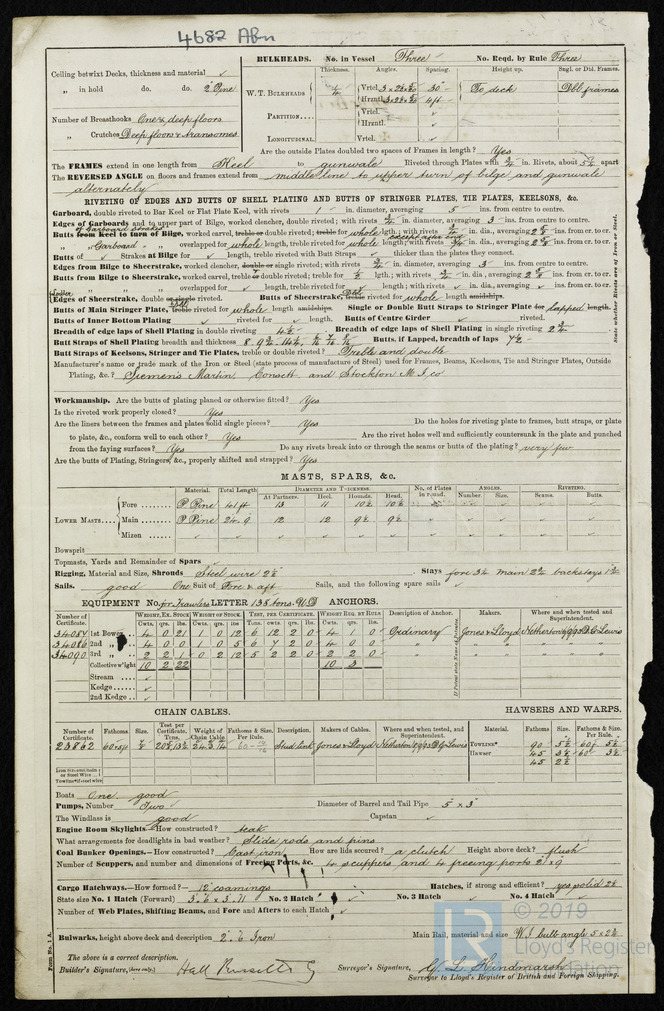 4682 Abn
BULKHEADS. No. in Vessel Three No. Reqd. by Rule Three
Thickness. Angles. Spacing. Height up. Sngl. or Dbl. Frames.
Ceiling betwixt Decks, thickness and material ✓
„ in hold do. do. 2" Pine
W. T. BULKHEADS Vrtcl. 30" To deck Dbl frames
Hrzntl.
Number of Breasthooks One & deep floors
PARTITION Vrtcl. ✓
Hrzntl. ✓
„ Crutches Deep floors & transomes
LONGITUDINAL. Vrtcl. ✓
Are the outside Plates doubled two spaces of Frames in length? Yes
The FRAMES extend in one length from Keel to gunwale Riveted through Plates with 3/4 in. Rivets, about 5 1/4 apart
The REVERSED ANGLE on floors and frames extend from middle line to upper turn of bilge and gunwale
alternately
RIVETING OF EDGES AND BUTTS OF SHELL PLATING AND BUTTS OF STRINGER PLATES, TIE PLATES, KEELSONS, &c.
Garboard, double riveted to Bar Keel or Flat Plate Keel, with rivets 1 in. diameter, averaging 5 ins. from centre to centre.
Edges of Garboards and to upper part of Bilge, worked clencher, double riveted; with rivets 3/4 in. diameter, averaging 3 ins. from centre to centre.
Butts from Keel to turn of Bilge, worked carvel, treble or double riveted; treble for whole lgth.; with rivets 3/4 in. dia., averaging ins. from cr. to cr.
„ Garboard „ „ overlapped for whole length; treble riveted for whole length; with rivets 3/4 in. dia., averaging ins. from cr. to cr.
Butts of ✓ Strakes at Bilge for ✓ length, treble riveted with Butt Straps ✓ thicker than the plates they connect.
Edges from Bilge to Sheerstrake, worked clencher, double or single riveted; with rivets 3/4 in. diameter, averaging 3 ins. from cr. to cr.
Butts from Bilge to Sheerstrake, worked carvel, treble or double riveted; treble for length; with rivets 3/4 in. dia., averaging ins. from cr. to cr.
„ „ „ overlapped for ✓ length; treble riveted for ✓ length; with rivets ✓ in. dia., averaging ✓ ins. from cr. to cr.
Edges of Sheerstrake, double or single riveted. Butts of Sheerstrake, treble riveted for whole length amidships.
Butts of Main Stringer Plate, treble riveted for whole length amidships. Single or Double Butt Straps to Stringer Plate for lapped length.
Butts of Inner Bottom Plating ✓ riveted for ✓ length. Butts of Centre Girder ✓ riveted.
Breadth of edge laps of Shell Plating in double riveting 4 1/2 Breadth of edge laps of Shell Plating in single riveting
Butt Straps of Shell Plating breadth and thickness Butts, if Lapped, breadth of laps 7 1/2
Butt Straps of Keelsons, Stringer and Tie Plates, treble or double riveted? Treble and double
Manufacturer's name or trade mark of the Iron or Steel (state process of manufacture of Steel) used for Frames, Beams, Keelsons, Tie and Stringer Plates, Outside
Plating, &c.? Siemens Martin, Consett and Stockton M I Co
State whether Rivets are of Iron or Steel.
Workmanship. Are the butts of plating planed or otherwise fitted? Yes
Is the riveted work properly closed? Yes
Are the liners between the frames and plates solid single pieces? Yes Do the holes for riveting plate to frames, butt straps, or plate
to plate, &c., conform well to each other? Yes Are the rivet holes well and sufficiently countersunk in the plate and punched
from the faying surfaces? Yes Do any rivets break into or through the seams or butts of the plating? very few
Are the butts of Plating, Stringers, &c., properly shifted and strapped? Yes
MASTS, SPARS, &c.
Material. Total Length DIAMETER AND THICKNESS. No. of Plates in round. ANGLES. RIVETING.
At Partners. Heel. Hounds. Head. Number. Size. Seams. Butts.
LOWER MASTS Fore P. Pine 41 ft 13 11 10 1/2 10 1/2
Main P Pine 12 12 9 1/2 9 1/2
Mizen ✓
Bowsprit
Topmasts, Yards and Remainder of Spars ✓
Rigging, Material and Size, Shrouds Steel wire 2 1/2 Stays fore 3 1/4 main backstays
Sails. good One Suit of Fore & aft Sails, and the following spare sails ✓
EQUIPMENT No. for Trawlers LETTER 138 tons. U.D. ANCHORS.
Number of Certificate. WEIGHT, EX. STOCK WEIGHT OF STOCK. TEST, PER CERTIFICATE. WEIGHT REQ. BY RULE Description of Anchor. Makers. Where and when tested and Superintendent.
Cwts. qrs. lbs. Cwts. qrs. lbs. Tons. cwts. qrs. lbs. Cwts. qrs. lbs.
34054 1st Bower 4 0 21 1 0 12 6 12 2 0 4 1 0 Ordinary Jones & Lloyd Netherton D. G. Lewis
34086 2nd „ 4 0 0 1 0 5 6 7 2 0 4 0 0 „ „ „
34090 3rd „ 2 2 1 0 2 12 5 2 2 0 2 2 0 „ „ „
Collective w'ight 10 2 22 10 3
Stream ✓
Kedge ✓
2nd Kedge ✓
CHAIN CABLES. HAWSERS AND WARPS.
Number of Certificate. Fathoms. Size. Test per Certificate, Tons. Weight of Chain Cable Fathoms & Size, Per Rule. Description. Makers of Cables. Where and when tested, and Superintendent. Material. Fathoms Size. Fathoms & Size. Per Rule.
23862 Stud link Jones & Lloyd Netherton D G Lewis TOWLINE 90 5 1/2 60 5 1/2
Hawser 45 3 1/2 60 3 1/2
45
Boats One good
Pumps, Number Two Diameter of Barrel and Tail Pipe 5 x 3
The Windlass is good Capstan ✓
Engine Room Skylights—How constructed? teak
What arrangements for deadlights in bad weather? Slide rods and pins
Coal Bunker Openings.—How constructed? Cast iron How are lids secured? a clutch Height above deck? flush
Number of Scuppers, and number and dimensions of Freeing Ports, &c. 4 scuppers and 4 freeing ports
Cargo Hatchways.—How formed? 12" coamings Hatches, if strong and efficient? yes solid 2 1/2
State size No. 1 Hatch (Forward) 3.6 x 3.11 No. 2 Hatch ✓ No. 3 Hatch ✓ No. 4 Hatch ✓
Number of Web Plates, Shifting Beams, and Fore and Afters to each Hatch ✓
Bulwarks, height above deck and description 2'.6 Iron Main Rail, material and size W. I bulb angle
The above is a correct description.
Builder's Signature, (here only.) Hall Russell & Co Surveyor's Signature, G. L. Hindmarsh
Surveyor to Lloyd's Register of British and Foreign Shipping.
Form No. 1 A.
© 2019
Lloyd's Register
Foundation
LR